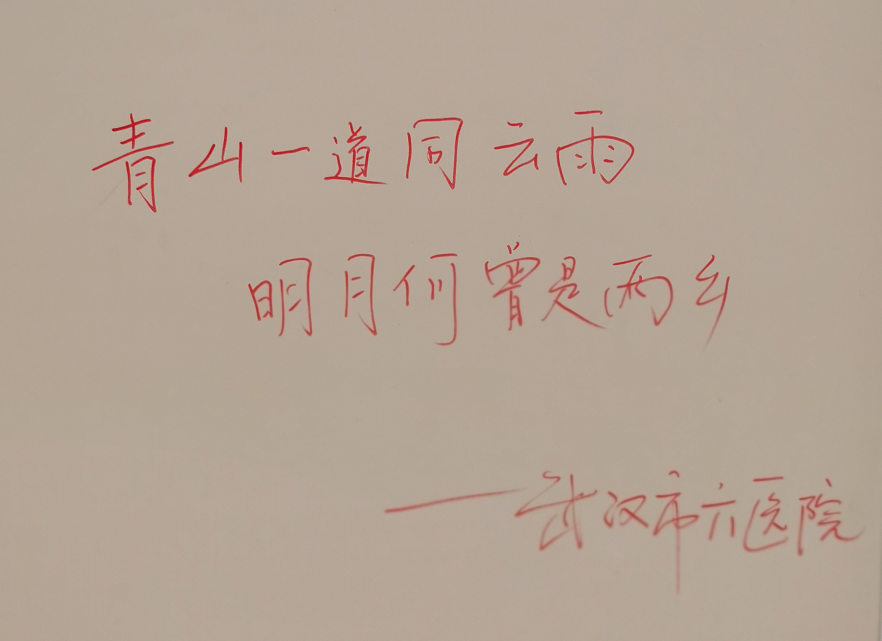 青山一道同云雨
明月何曾是两乡
——武汉市六医院